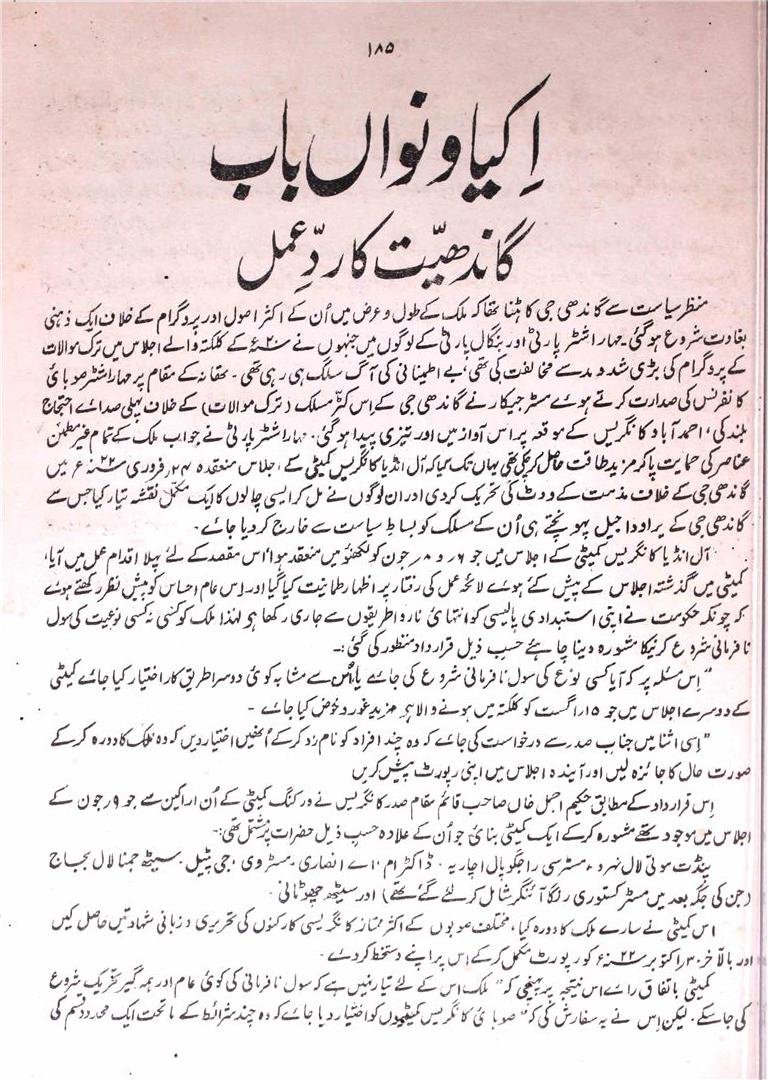 ۱۸۵
اکیاونواں باب
گاندھیّت کا ردِّ عمل
منظر سیاست سے گاندھی جی کا ہٹنا تھا کہ ملک کے طول و عرض میں اُن کے اکثر اصول اور پروگرام کے خلاف ایک ذہنی
بغاوت شروع ہوگئی۔ مہاراشٹر پارٹی اور بنگال پارٹی کے لوگوں میں جنہوں نے ۱۹۲۰ء کے کلکتہ والے اجلاس میں ترک موالات
کے پروگرام کی بڑی شد و مد سے مخالفت کی تھی، بے اطمینانی کی آگ سلگ ہی رہی تھی۔ تھانہ کے مقام پر مہاراشٹر صوبائی
کانفرنس کی صدارت کرتے ہوئے مسٹر جیکار نے گاندھی جی کے اِس کٹّر مسلک (ترک موالات) کے خلاف پہلی صدائے احتجاج
بلند کی، احمد آباد کانگریس کے موقعہ پر اس آواز میں اور تیزی پیدا ہوگئی۔ مہاراشٹر پارٹی نے جو اب ملک کے تمام غیر مطمئن
عناصر کی حمایت پاکر مزید طاقت حاصل کرچکی تھی یہاں تک گیا کہ آل انڈیا کانگریس کمیٹی کے، اجلاس منعقدہ ۲۴ فروری ۲۲ء میں
گاندھی جی کے خلاف مذمت کے ووٹ کی تحریک کردی اور ان لوگوں نے مل کر ایسی چالوں کا ایک مکمل نقشہ تیار کیا جس سے
گاندھی جی کے یراودا جیل پہونچتے ہی اُن کے مسلک کو بساط سیاست سے خارج کر دیا جائے۔
آل انڈیا کانگریس کمیٹی کے اجلاس میں جو ۷، ۶ و ۸؍ جون کو لکھنؤ میں منعقد ہوا، اس مقصد کے لئے پہلا اقدام عمل میں آیا،
کمیٹی میں گذشتہ اجلاس کے پیش کئے ہوئے لائحۂ عمل کی رفتار پر اظہار طمانیت کیا گیا اور اِس عام احساس کو پیش نظر رکھتے ہوئے
کہ چونکہ حکومت نے اپنی استبدادی پالیسی کو انتہائی ناروا طریقوں سے جاری رکھا ہو لہٰذا ملک کو کسی نہ کسی نوعیت کی سول
نافرمانی شروع کرنیکا مشورہ دینا چاہئے حسب ذیل قرارداد منظور کی گئی:۔
”اِس مسئلہ پر کہ آیا کسی نوع کی سول نافرمانی شروع کی جائے یا اس سے مشابہ کوئی دوسرا طریق کار اختیار کیا جائے کمیٹی
کے دوسرے اجلاس میں جو ۱۵؍ اگست کو کلکتہ میں ہونے والا ہے مزید غور و خوض کیا جائے۔
”اِسی اثنا میں جناب صدر سے درخواست کی جائے کہ وہ چند افراد کو نامزد کرکے اُنھیں اختیار دیں کہ وہ ملک کا دورہ کرکے
صورت حال کا جائزہ لیں اور آیندہ اجلاس میں اپنی رپورٹ پیش کریں
اِس قرارداد کے مطابق حکیم اجمل خاں صاحب قائم مقام صدر کانگریس نے ورکنگ کمیٹی کے اُن اراکین سے جو ۹؍ جون کے
اجلاس میں موجود تھے مشورہ کرکے ایک کمیٹی بنائی جو اُن کے علاوہ حسب ذیل حضرات پر مشتمل تھی:۔
پنڈت موتی لال نہرو، مسٹر سی راجگوپال اچاریہ۔ ڈاکٹر ام۔ اے انصاری۔ مسٹر وی۔ جی پٹیل۔ سیٹھ جمنا لال بجاج
(جن کی جگہ بعد میں مسٹر کستوری رنگا آئنگر شامل کر لئے گئے تھے) اور سیٹھ چھوٹانی۔
اس کمیٹی نے سارے ملک کا دورہ کیا، مختلف صوبوں کے اکثر ممتاز کانگریسی کارکنوں کی تحریری و زبانی شہادتیں حاصل کیں
اور بالآخر ۳۰؍ اکتوبر ۲۲ء کو رپورٹ مکمل کرکے اِس پر اپنے دستخط کردئے۔
کمیٹی باتفاق رائے اس نتیجہ پر پہنچی کہ ”ملک اس کے لئے تیار نہیں ہے کہ سول نافرمانی کی کوئی عام اور ہمہ گیر تحریک شروع
کی جاسکے۔ لیکن اِس نے یہ سفارش کی کہ ”صوبائی کانگریس کمیٹیوں کو اختیار دیا جائے کہ وہ چند شرائط کے ماتحت ایک محدود قسم کی